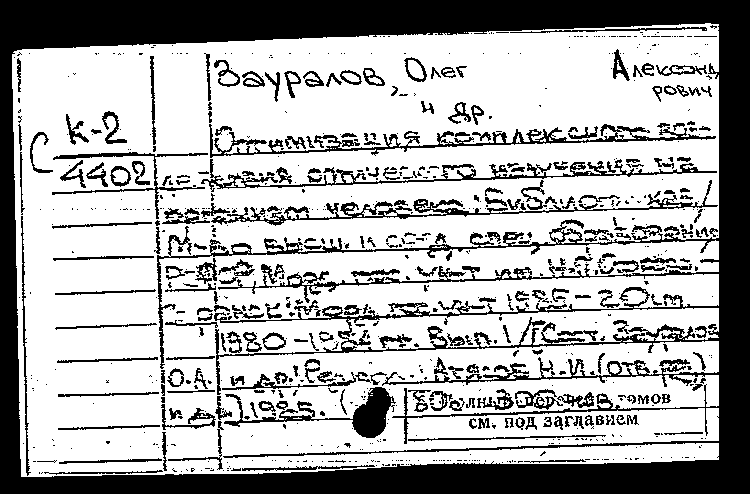 Зауралов, Олег Александрович
и др.
С К-2 4402
Оптимизация комплексного воз-
действия оптического излучения на
организм человека: Библиогр. указ /
М-во высш. и сред. спец. образования
РСФСР, Морд. гос. ун-т им. Н.П. Огарева. -
Саранск: Морд. гос. ун-т 1985. - 20 см.
1980-1984 гг. Вып. 1 / [Сост. Зауралов
О.А. и др.; Редкол.: Атясов Н.И. (отв. ред.)
и др.]. 1985.
томов
см. под заглавием